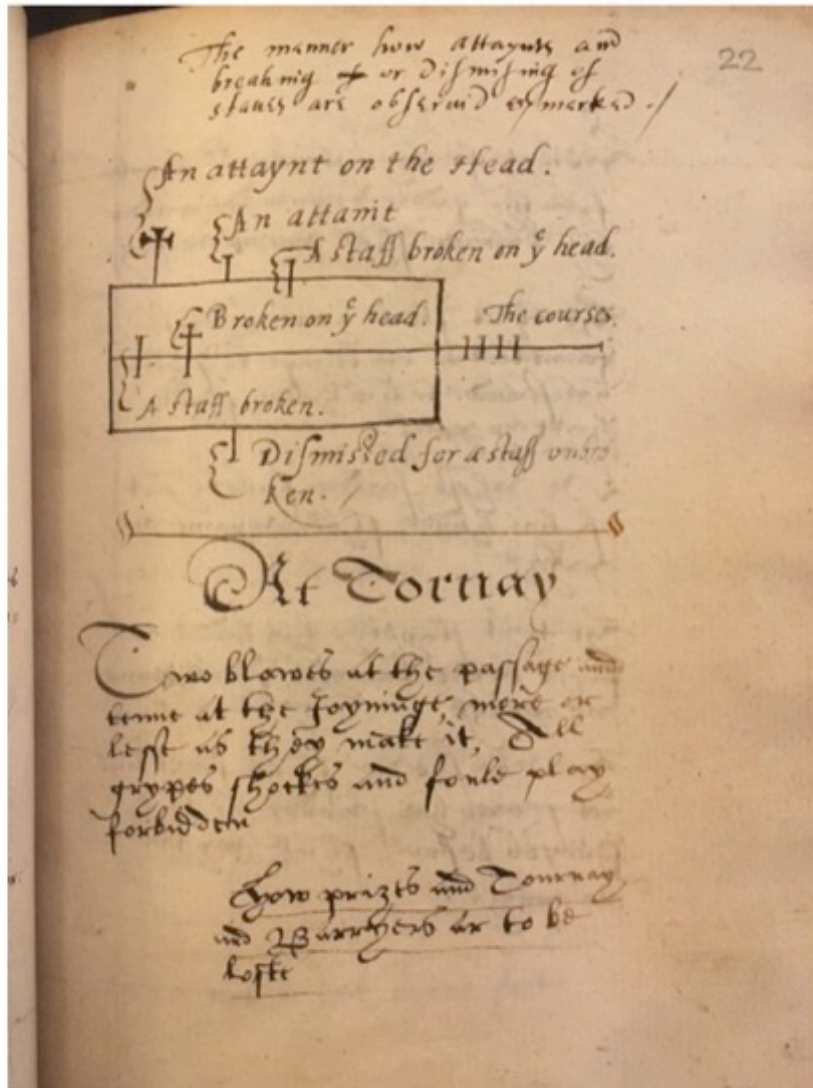 The manner how attaynts and
22
breaking or dismising of
staues are obserued & marked ./
An attaynt on the Head.
An attaint
A staff broken on yͤ head.
Broken on yͤ head.
The courses.
A staff broken.
Dismissed for a staff unbro
ken.
At Tornay
Two blowes at the passage and
tenne at the Joyninge, more or
lesse as they make it, All
grypes shockes and foule play
forbidden
How prizes and Tournay
and Barryers ar to be
loste